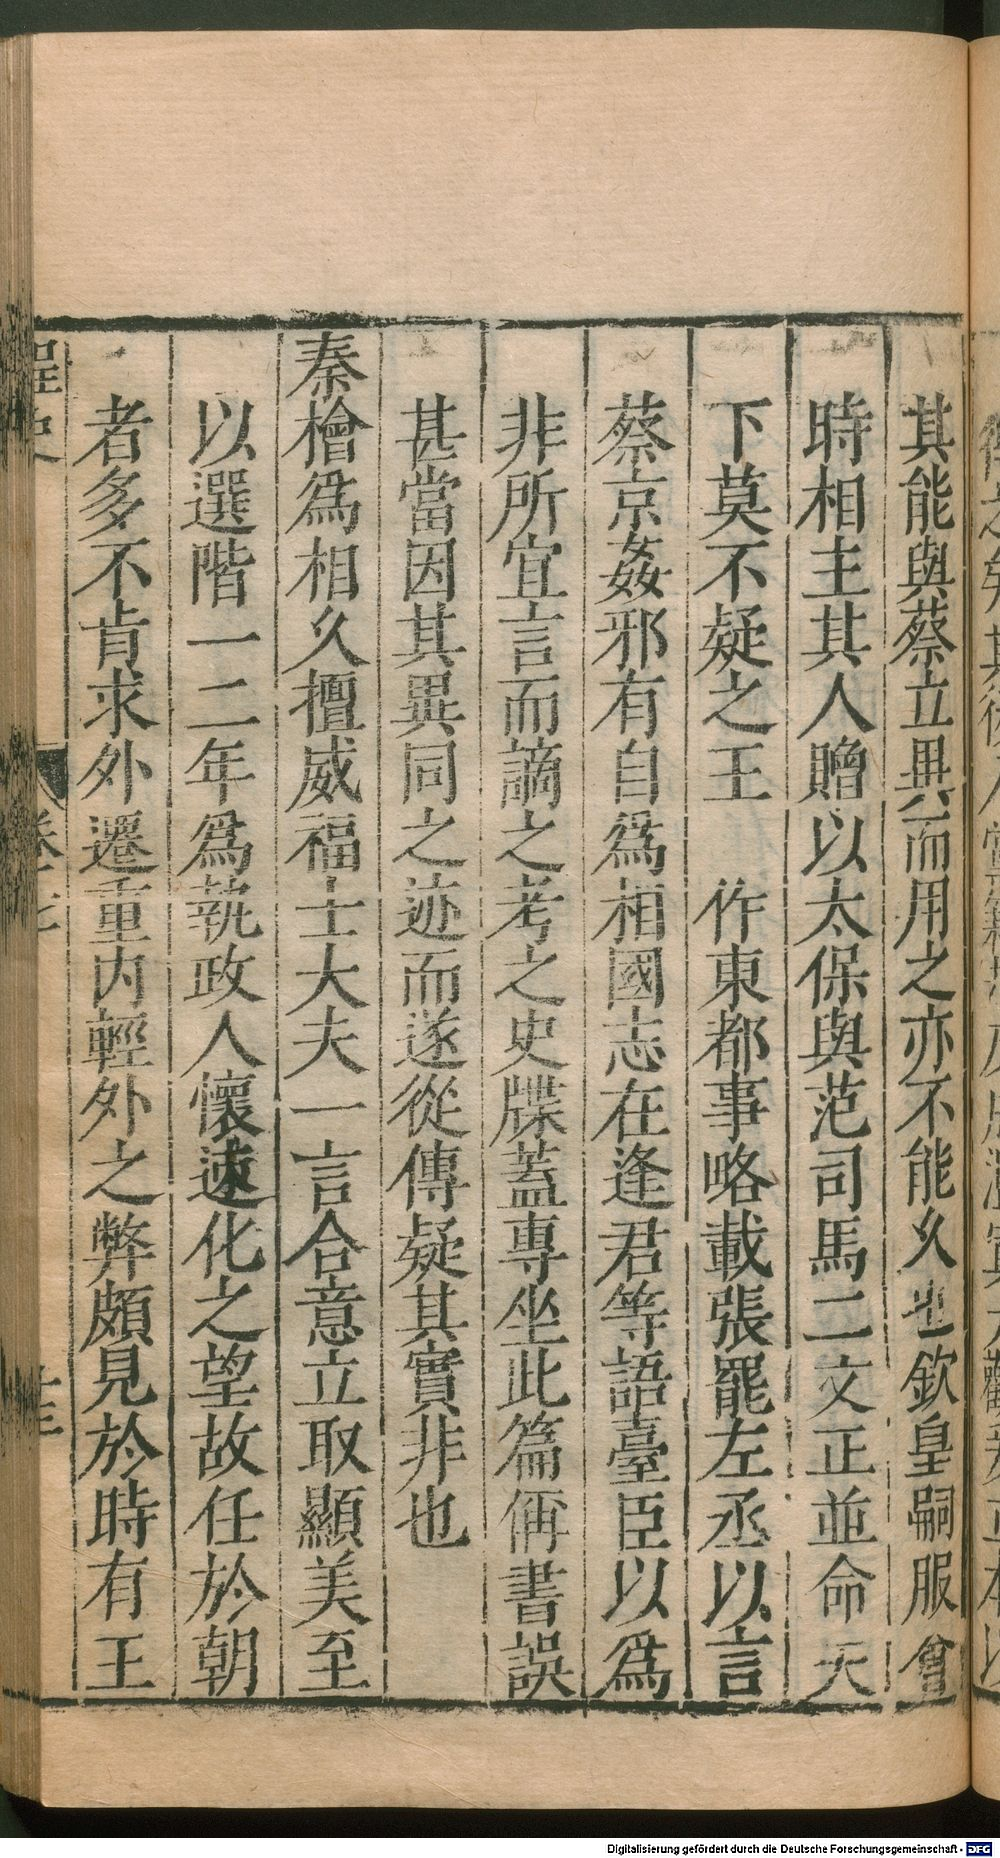 其能與蔡立異而用之亦不能久也欽皇嗣服會
時相主其人贈以太保與范司馬二文正並命天
下莫不疑之王 作東都事略載張罷左丞以言
蔡京姦邪有自為相國志在逢君等語臺臣以為
非所宜言而謫之考之史牒蓋專坐此篇偁書誤
甚當因其異同之迹而遂從傳疑其實非也
秦檜為相久擅威福士大夫一言合意立取顯美至
以選階一二年為執政人懷速化之望故任於朝
者多不肯求外遷重內輕外之弊頗見於時有王
桯史 卷七 十三
Digitalisierung gefördert durch die Deutsche Forschungsgemeinschaft - DFG